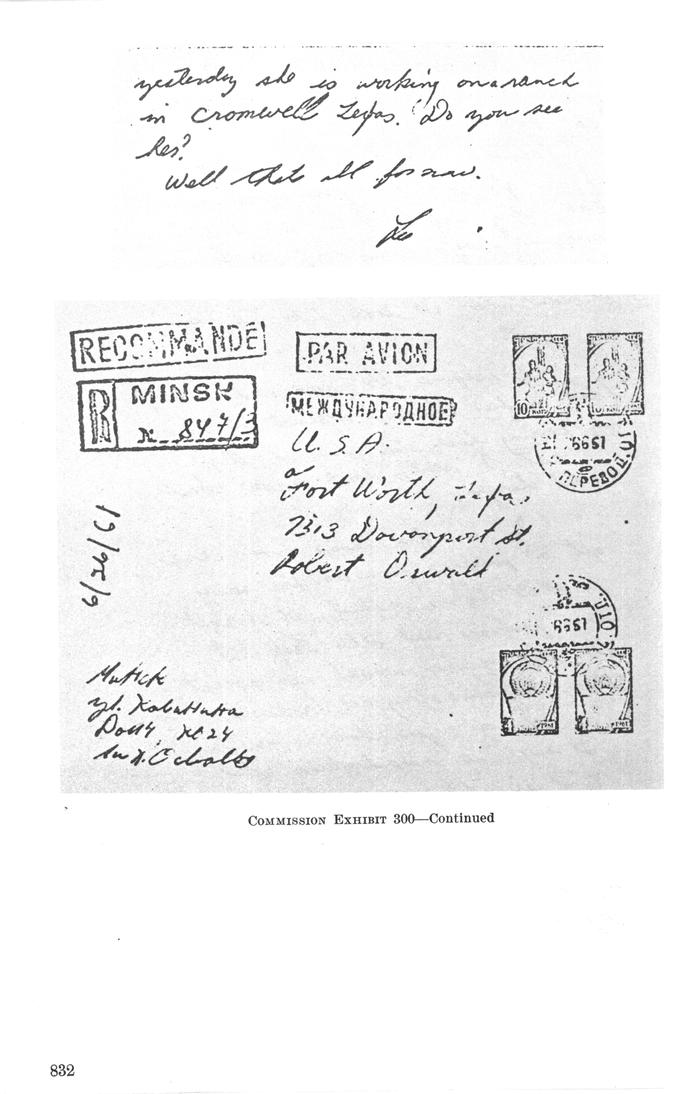 yesterday she is working on a ranch
in Cromwell Texas. Do you see
her?
Well that's all for now.
Lee
RECOMMANDÉ
PAR AVION
R MINSK
N 847/3
МЕЖДУНАРОДНОЕ
U.S.A.
Fort Worth, Texas
7313 Davenport St.
Robert Oswald
6/26/61
10
ПЕРЕВОД
Минск
ул.
Дом 4, кв 24
COMMISSION EXHIBIT 300—Continued
832